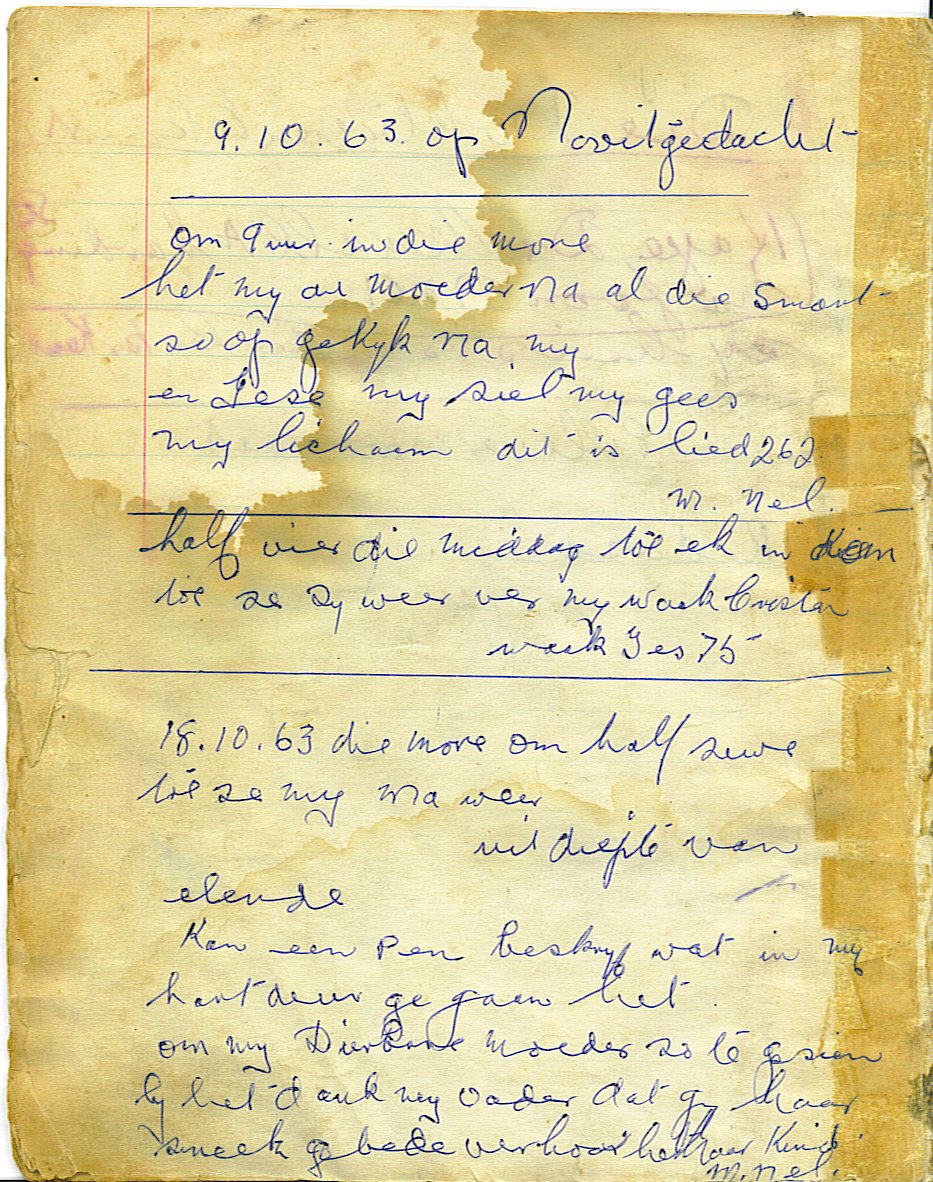 9.10.63. op Nooitgedacht
om 9 uur in die more
het my ou moeder na al die smart
so op gekyk na my
en Lese my siel my gees
my lichaam dit is lied 262
M. Nel.
half vier die middag toe ek in kom
toe se sy weer ver my waak Cristen
waak Ges 75
18.10.63 die more om half sewe
toe se my ma weer
uit diepte van
elende
Kan een pen beskryf wat in my
hart deur ge gaan het.
om my Dierbare moeder so te gesien
ly het dank my vader dat gy haar
smeek gebede verhoor het haar Kind.
M. Nel.